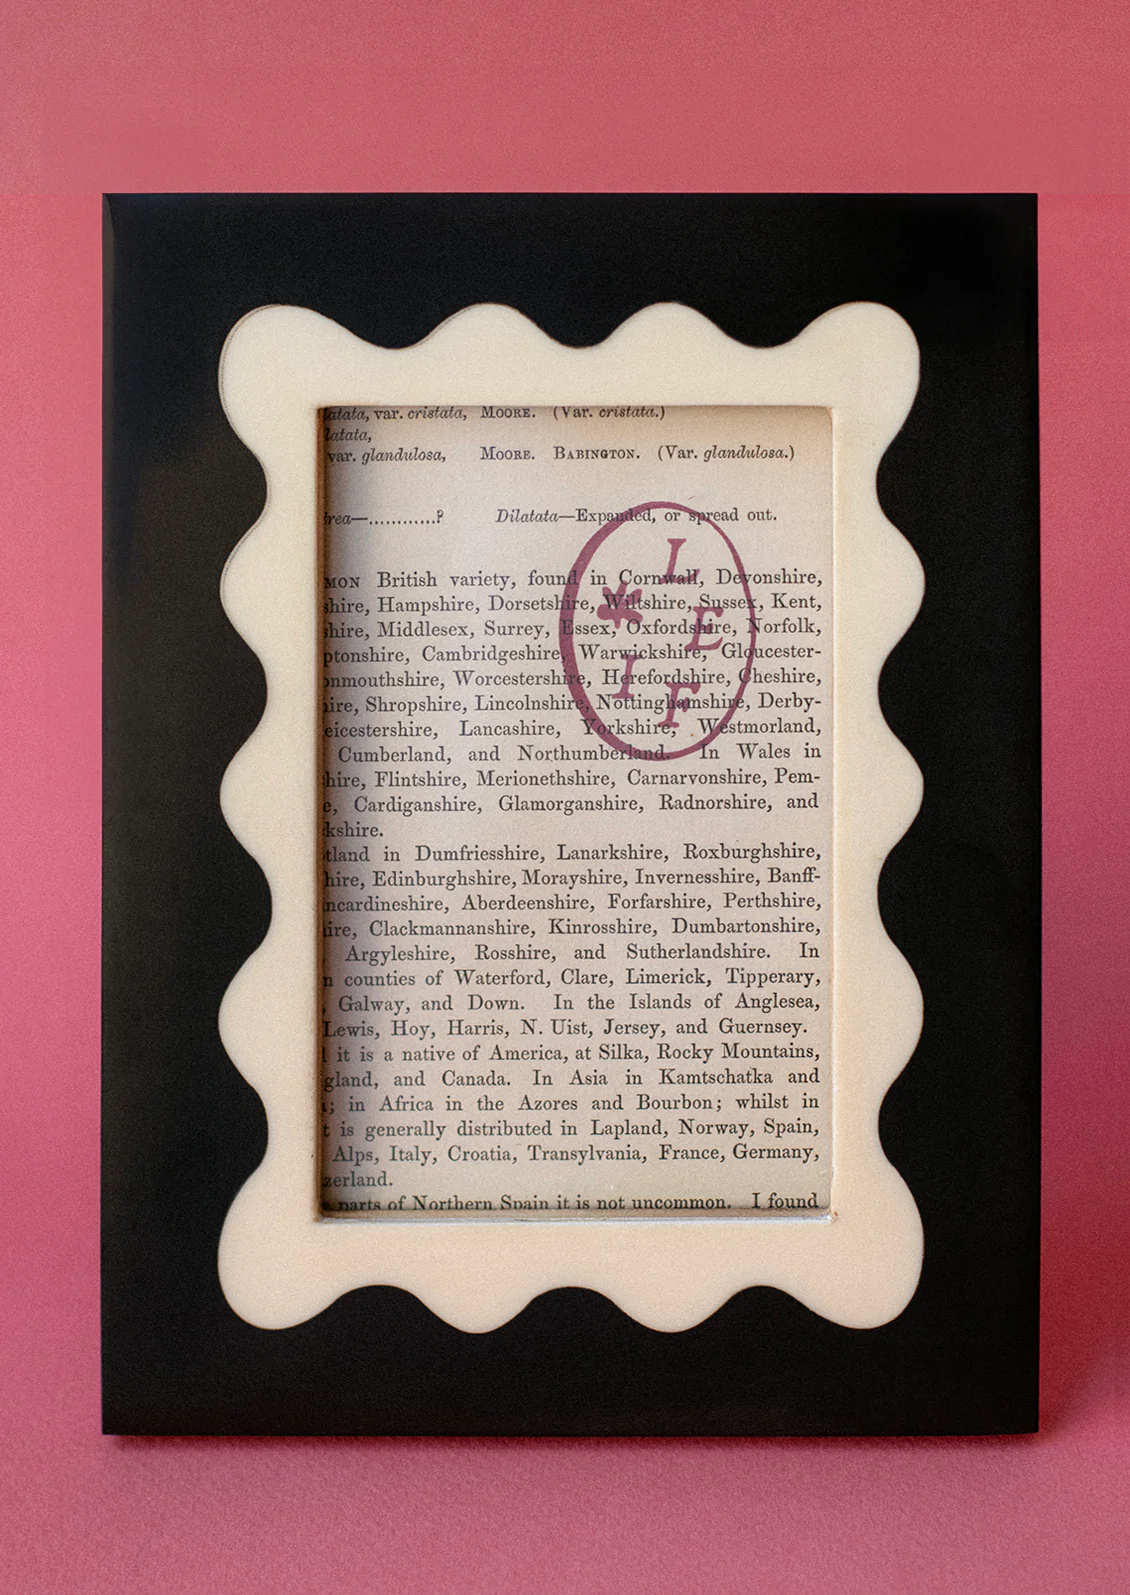 latata, var. cristata, MOORE. (Var. cristata.)
latata,
var. glandulosa, MOORE. BABINGTON. (Var. glandulosa.)
rea—............? Dilatata—Expanded, or spread out.
MON British variety, found in Cornwall, Devonshire,
shire, Hampshire, Dorsetshire, Wiltshire, Sussex, Kent,
shire, Middlesex, Surrey, Essex, Oxfordshire, Norfolk,
ptonshire, Cambridgeshire, Warwickshire, Gloucester-
onmouthshire, Worcestershire, Herefordshire, Cheshire,
ire, Shropshire, Lincolnshire, Nottinghamshire, Derby-
eicestershire, Lancashire, Yorkshire, Westmorland,
Cumberland, and Northumberland. In Wales in
hire, Flintshire, Merionethshire, Carnarvonshire, Pem-
e, Cardiganshire, Glamorganshire, Radnorshire, and
kshire.
tland in Dumfriesshire, Lanarkshire, Roxburghshire,
hire, Edinburghshire, Morayshire, Invernesshire, Banff-
ncardineshire, Aberdeenshire, Forfarshire, Perthshire,
ire, Clackmannanshire, Kinrosshire, Dumbartonshire,
Argyleshire, Rosshire, and Sutherlandshire. In
n counties of Waterford, Clare, Limerick, Tipperary,
, Galway, and Down. In the Islands of Anglesea,
Lewis, Hoy, Harris, N. Uist, Jersey, and Guernsey.
l it is a native of America, at Silka, Rocky Mountains,
gland, and Canada. In Asia in Kamtschatka and
; in Africa in the Azores and Bourbon; whilst in
t is generally distributed in Lapland, Norway, Spain,
Alps, Italy, Croatia, Transylvania, France, Germany,
zerland.
parts of Northern Spain it is not uncommon. I found
LEIF